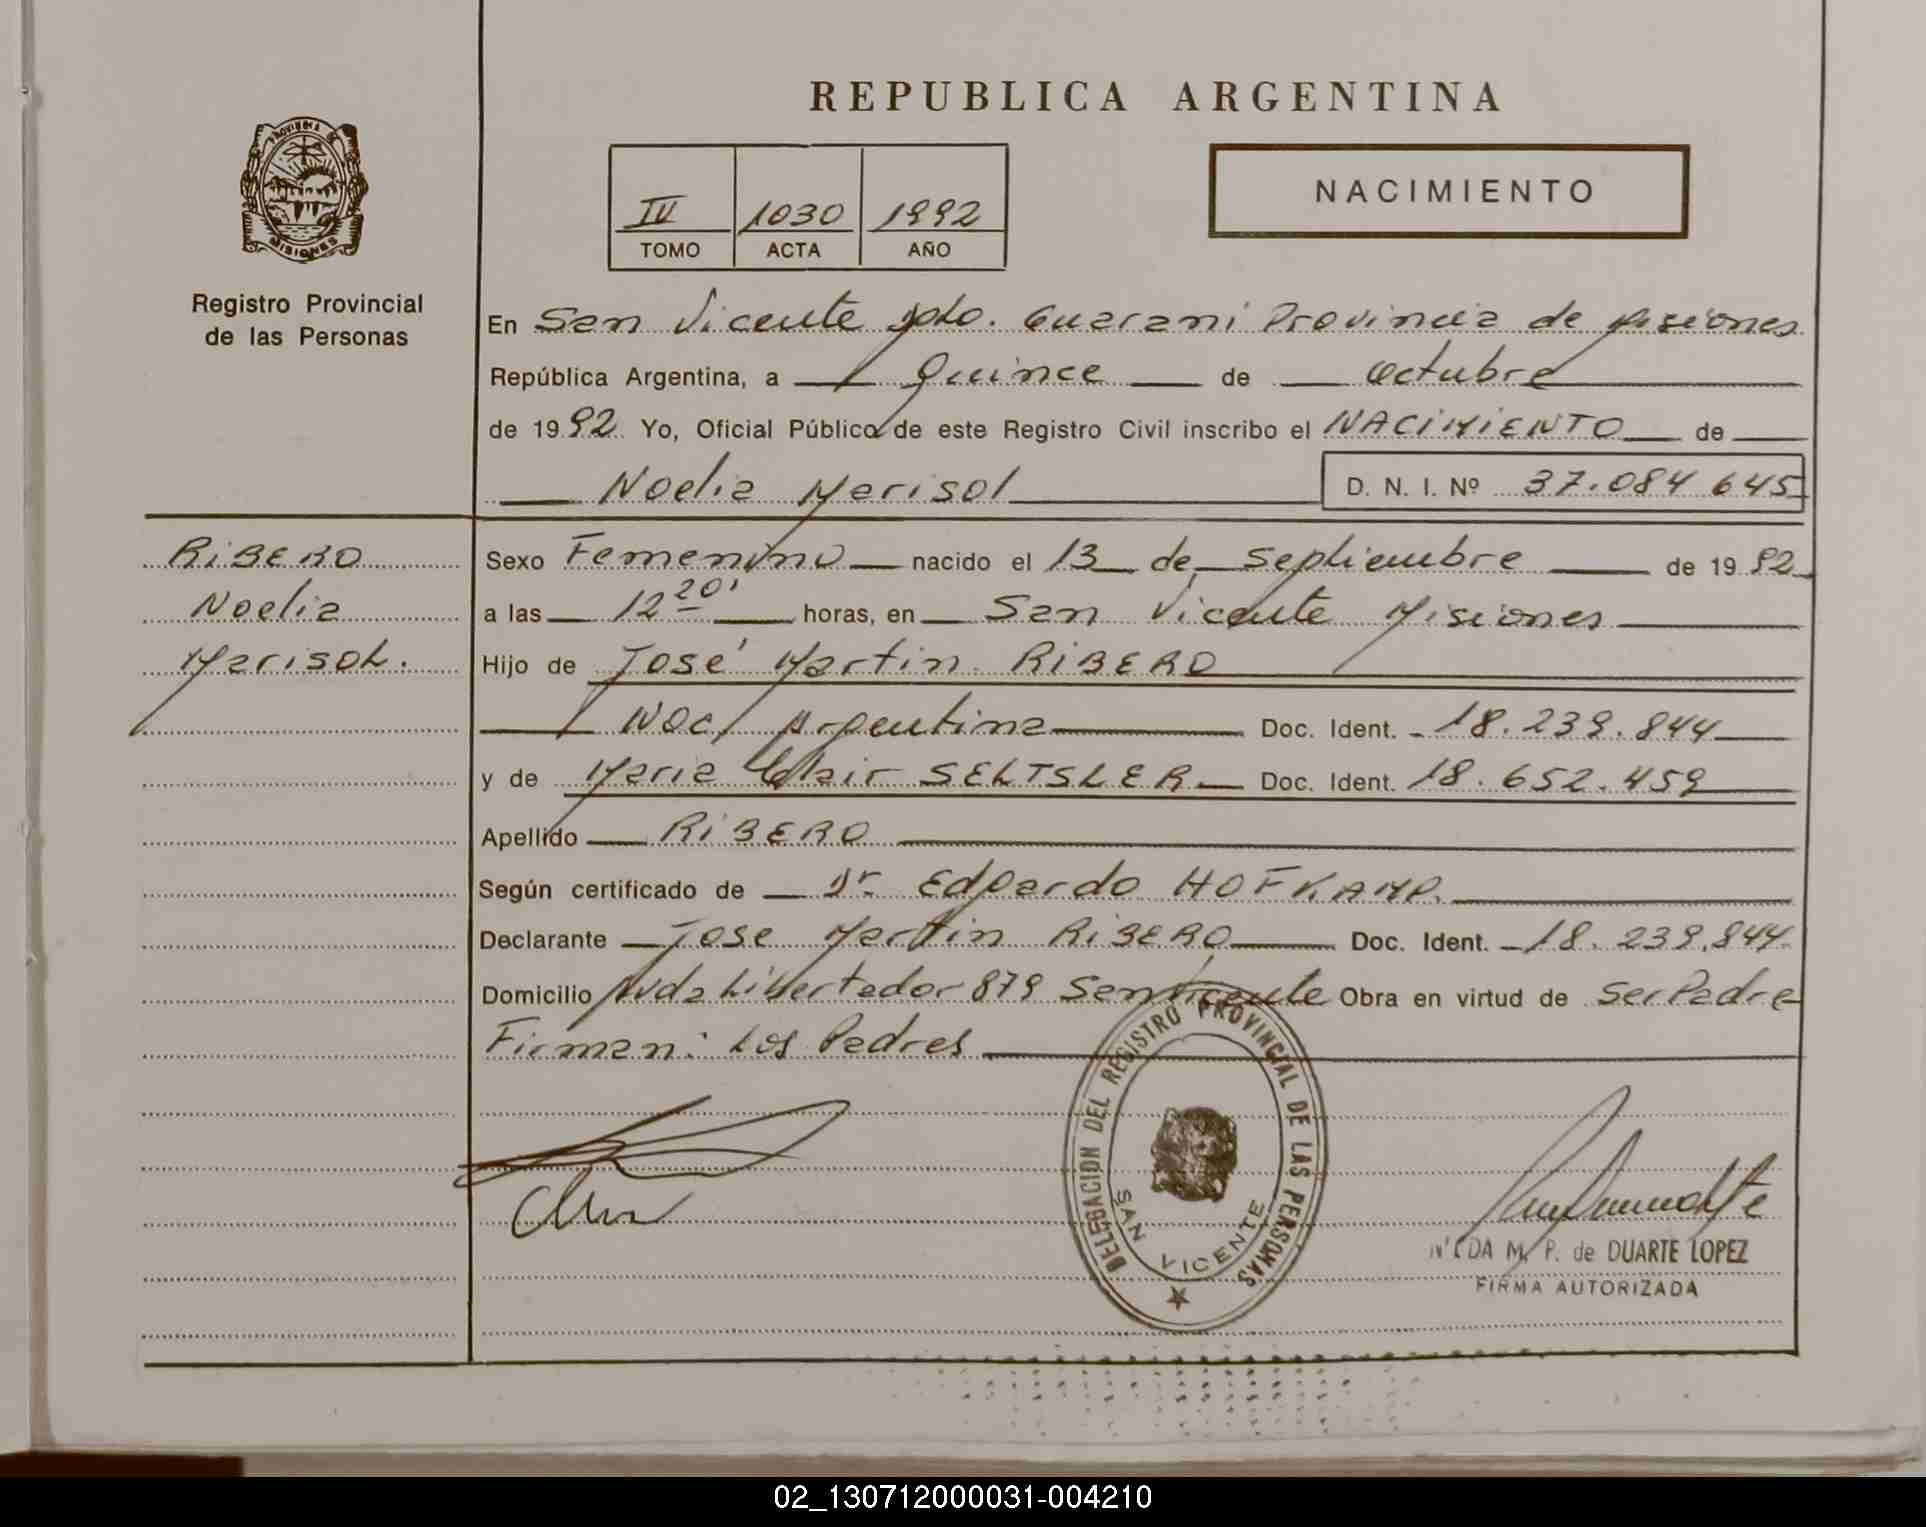 REPUBLICA ARGENTINA
PROVINCIA DE
MISIONES
Registro Provincial
de las Personas
IV 1030 1992
TOMO ACTA AÑO
NACIMIENTO
En San Vicente Dpto. Guarani Provincia de Misiones
República Argentina, a Quince de Octubre
de 1992 Yo, Oficial Público de este Registro Civil inscribo el NACIMIENTO de
Noelia Marisol D. N. I. Nº 37.084 645
RIBERO
Noelia
Marisol.
Sexo Femenino nacido el 13 de Septiembre de 1992
a las 12 20' horas, en San Vicente Misiones
Hijo de José Martin RIBERO
Nac/ Argentina Doc. Ident. 18.239.844
y de Maria Clair SELTSLER Doc. Ident. 18.652.459
Apellido RIBERO
Según certificado de Dr. Edgardo HOFKAMP.
Declarante Jose Martin RIBERO Doc. Ident. 18.239.844
Domicilio Avda Libertador 879 San Vicente Obra en virtud de Ser Padre
Firman: Los Padres
DELEGACION DEL REGISTRO PROVINCIAL DE LAS PERSONAS
SAN VICENTE
M. P. de DUARTE LOPEZ
FIRMA AUTORIZADA
02_130712000031-004210